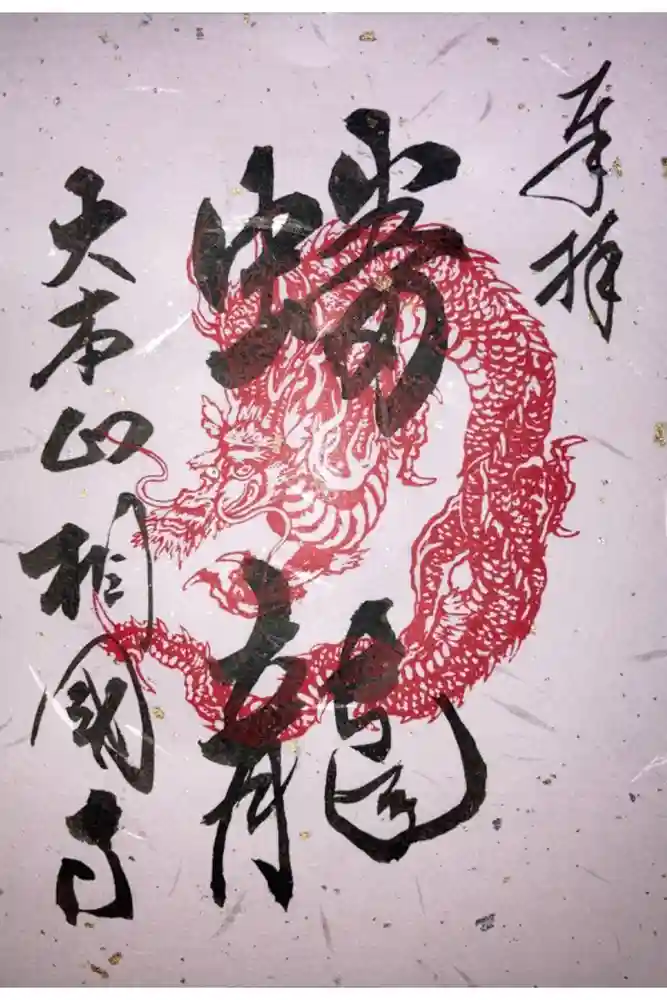 奉拝
蟠龍
大本山相國寺